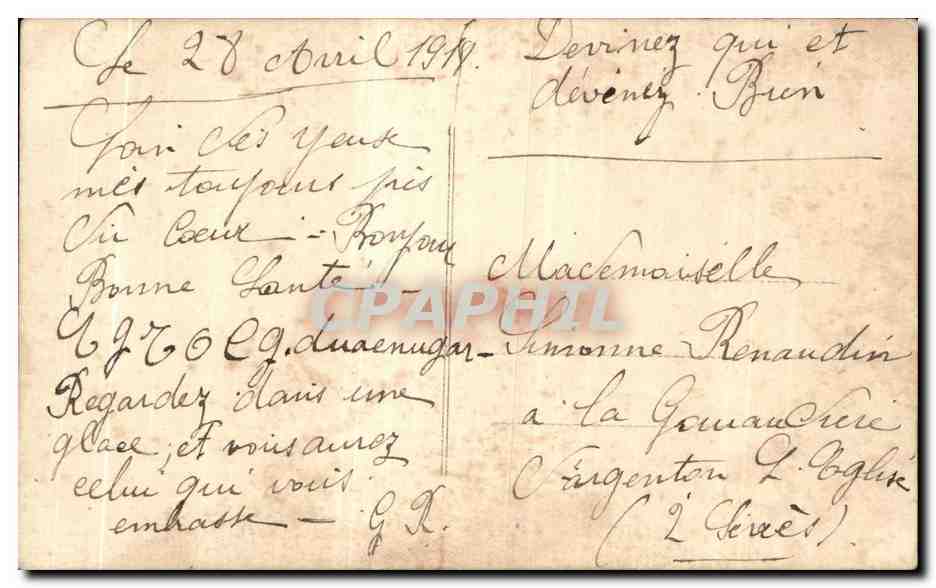 Le 28 Avril 1918.
Loin des yeux
mès toujours près
du coeur - Bonjour
Bonne Santé -
Regardez dans une
glace, et vous aurez
celui qui vous
embrasse - G R.
Devinez qui et
dévénez Bien
Mademoiselle
Simonne Renaudin
a la
Argenton L. Eglise
(2 Sèvres)
CPAPHIL